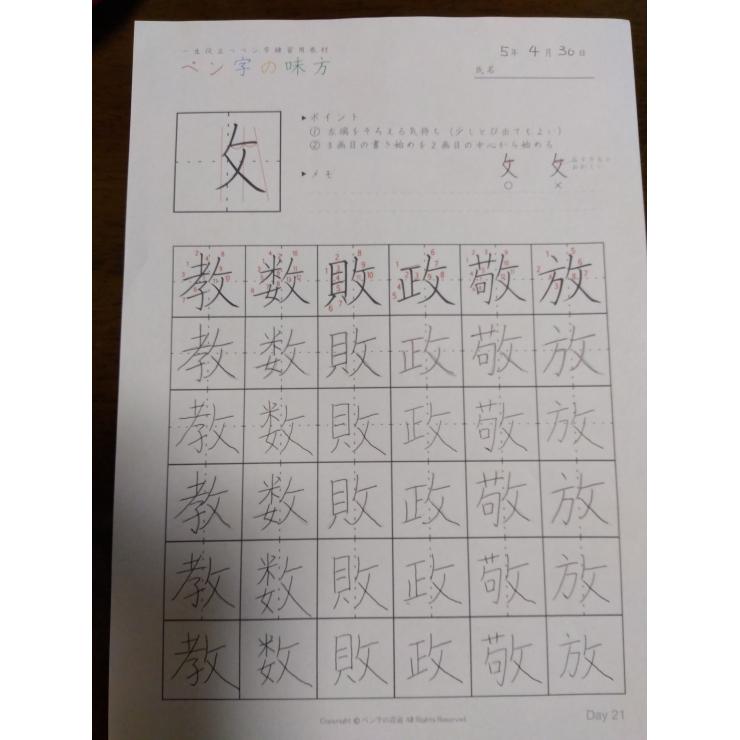 一生役立つペン字練習用教材
ペン字の味方
5年 4月 30日
氏名
攵
▶ポイント
① 左端をそろえる気持ち（少しとび出てもよい）
② 3画目の書き始めを2画目の中心から始める
▶メモ
攵 攵
○ ×
教 数 敗 政 敬 放
教 数 敗 政 敬 放
教 数 敗 政 敬 放
教 数 敗 政 敬 放
教 数 敗 政 敬 放
教 数 敗 政 敬 放
Copyright © ペン字の All Rights Reserved.
Day 21